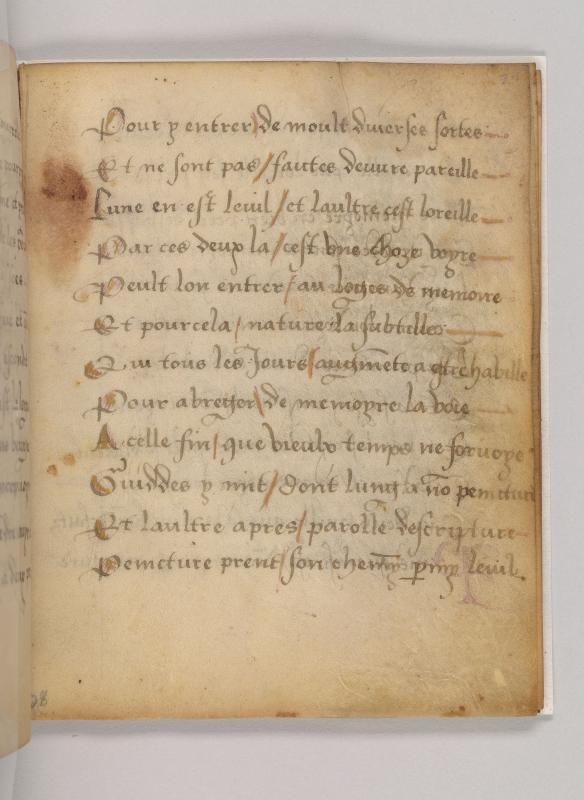 Pour y entrer / de moult diverses sortes
Et ne sont pas / faictes deuvre pareille
Lune en est leuil / et laultre cest loreille
Par ces deux la / cest une chose voyre
Peult lon entrer / au loges de memoire
Et pourcela / nature la subtille
Qui tous les Jours / augmēte a estre habille
Pour abreger / de memoyre la voie
A celle fin / que vieulx temps ne forvoye
Guiddes y mit / dont lung a nō pemcture
Et laultre apres / parolle descripture
Pemcture prent / son chemī parmy leuil.
28